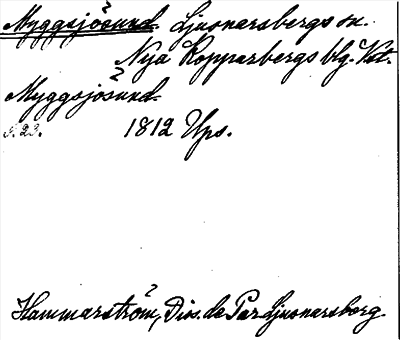 Myggsjösund. Ljusnarsbergs sn.
Nya Kopparbergs blg. Vst.
Myggsjösund.
s. 23. 1812 Ups.
Hammarström, Diss. de Par. Ljusnarsborg.